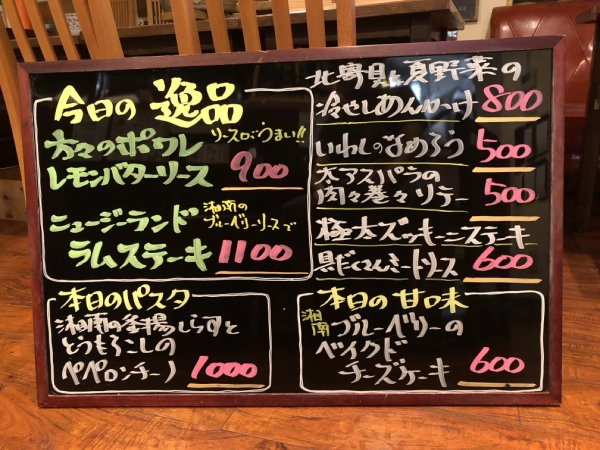 今日の 逸品
ソースがうまい!!
方々のポワレ
レモンバターソース 900
ニュージーランド
湘南の
ブルーベリーソースで
ラムステーキ 1100
本日のパスタ
湘南の釜揚しらすと
とうもろこしの
ペペロンチーノ 1000
北寄貝と夏野菜の
冷やしあんかけ 800
いわしのなめろう 500
太アスパラの
肉々巻々ソテー 500
極太ズッキーニステーキ
具だくさんミートソース 600
本日の甘味
湘南ブルーベリーの
ベイクド
チーズケーキ 600